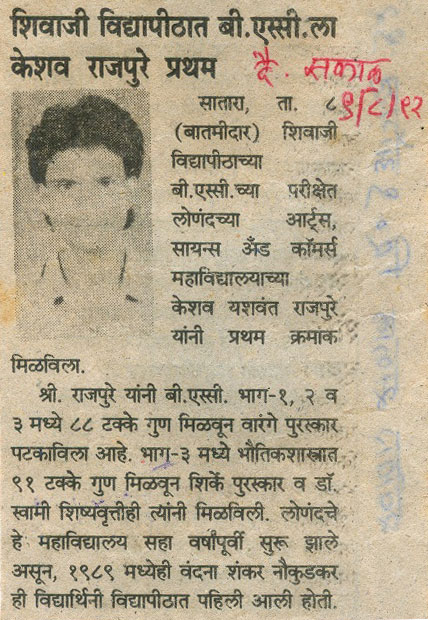 शिवाजी विद्यापीठात बी.एस्सी.ला
केशव राजपुरे प्रथम
दै. सकाळ
९/८/९२
सातारा, ता. ८
(बातमीदार) शिवाजी
विद्यापीठाच्या
बी.एस्सी.च्या परीक्षेत
लोणंदच्या आर्ट्स,
सायन्स अँड कॉमर्स
महाविद्यालयाच्या
केशव यशवंत राजपुरे
यांनी प्रथम क्रमांक
मिळविला.
श्री. राजपुरे यांनी बी.एस्सी. भाग-१, २ व
३ मध्ये ८८ टक्के गुण मिळवून वारंगे पुरस्कार
पटकाविला आहे. भाग-३ मध्ये भौतिकशास्त्रात
९१ टक्के गुण मिळवून शिर्के पुरस्कार व डॉ.
स्वामी शिष्यवृत्तीही त्यांनी मिळविली. लोणंदचे
हे महाविद्यालय सहा वर्षांपूर्वी सुरू झाले
असून, १९८९ मध्येही वंदना शंकर नौकुडकर
ही विद्यार्थिनी विद्यापीठात पहिली आली होती.